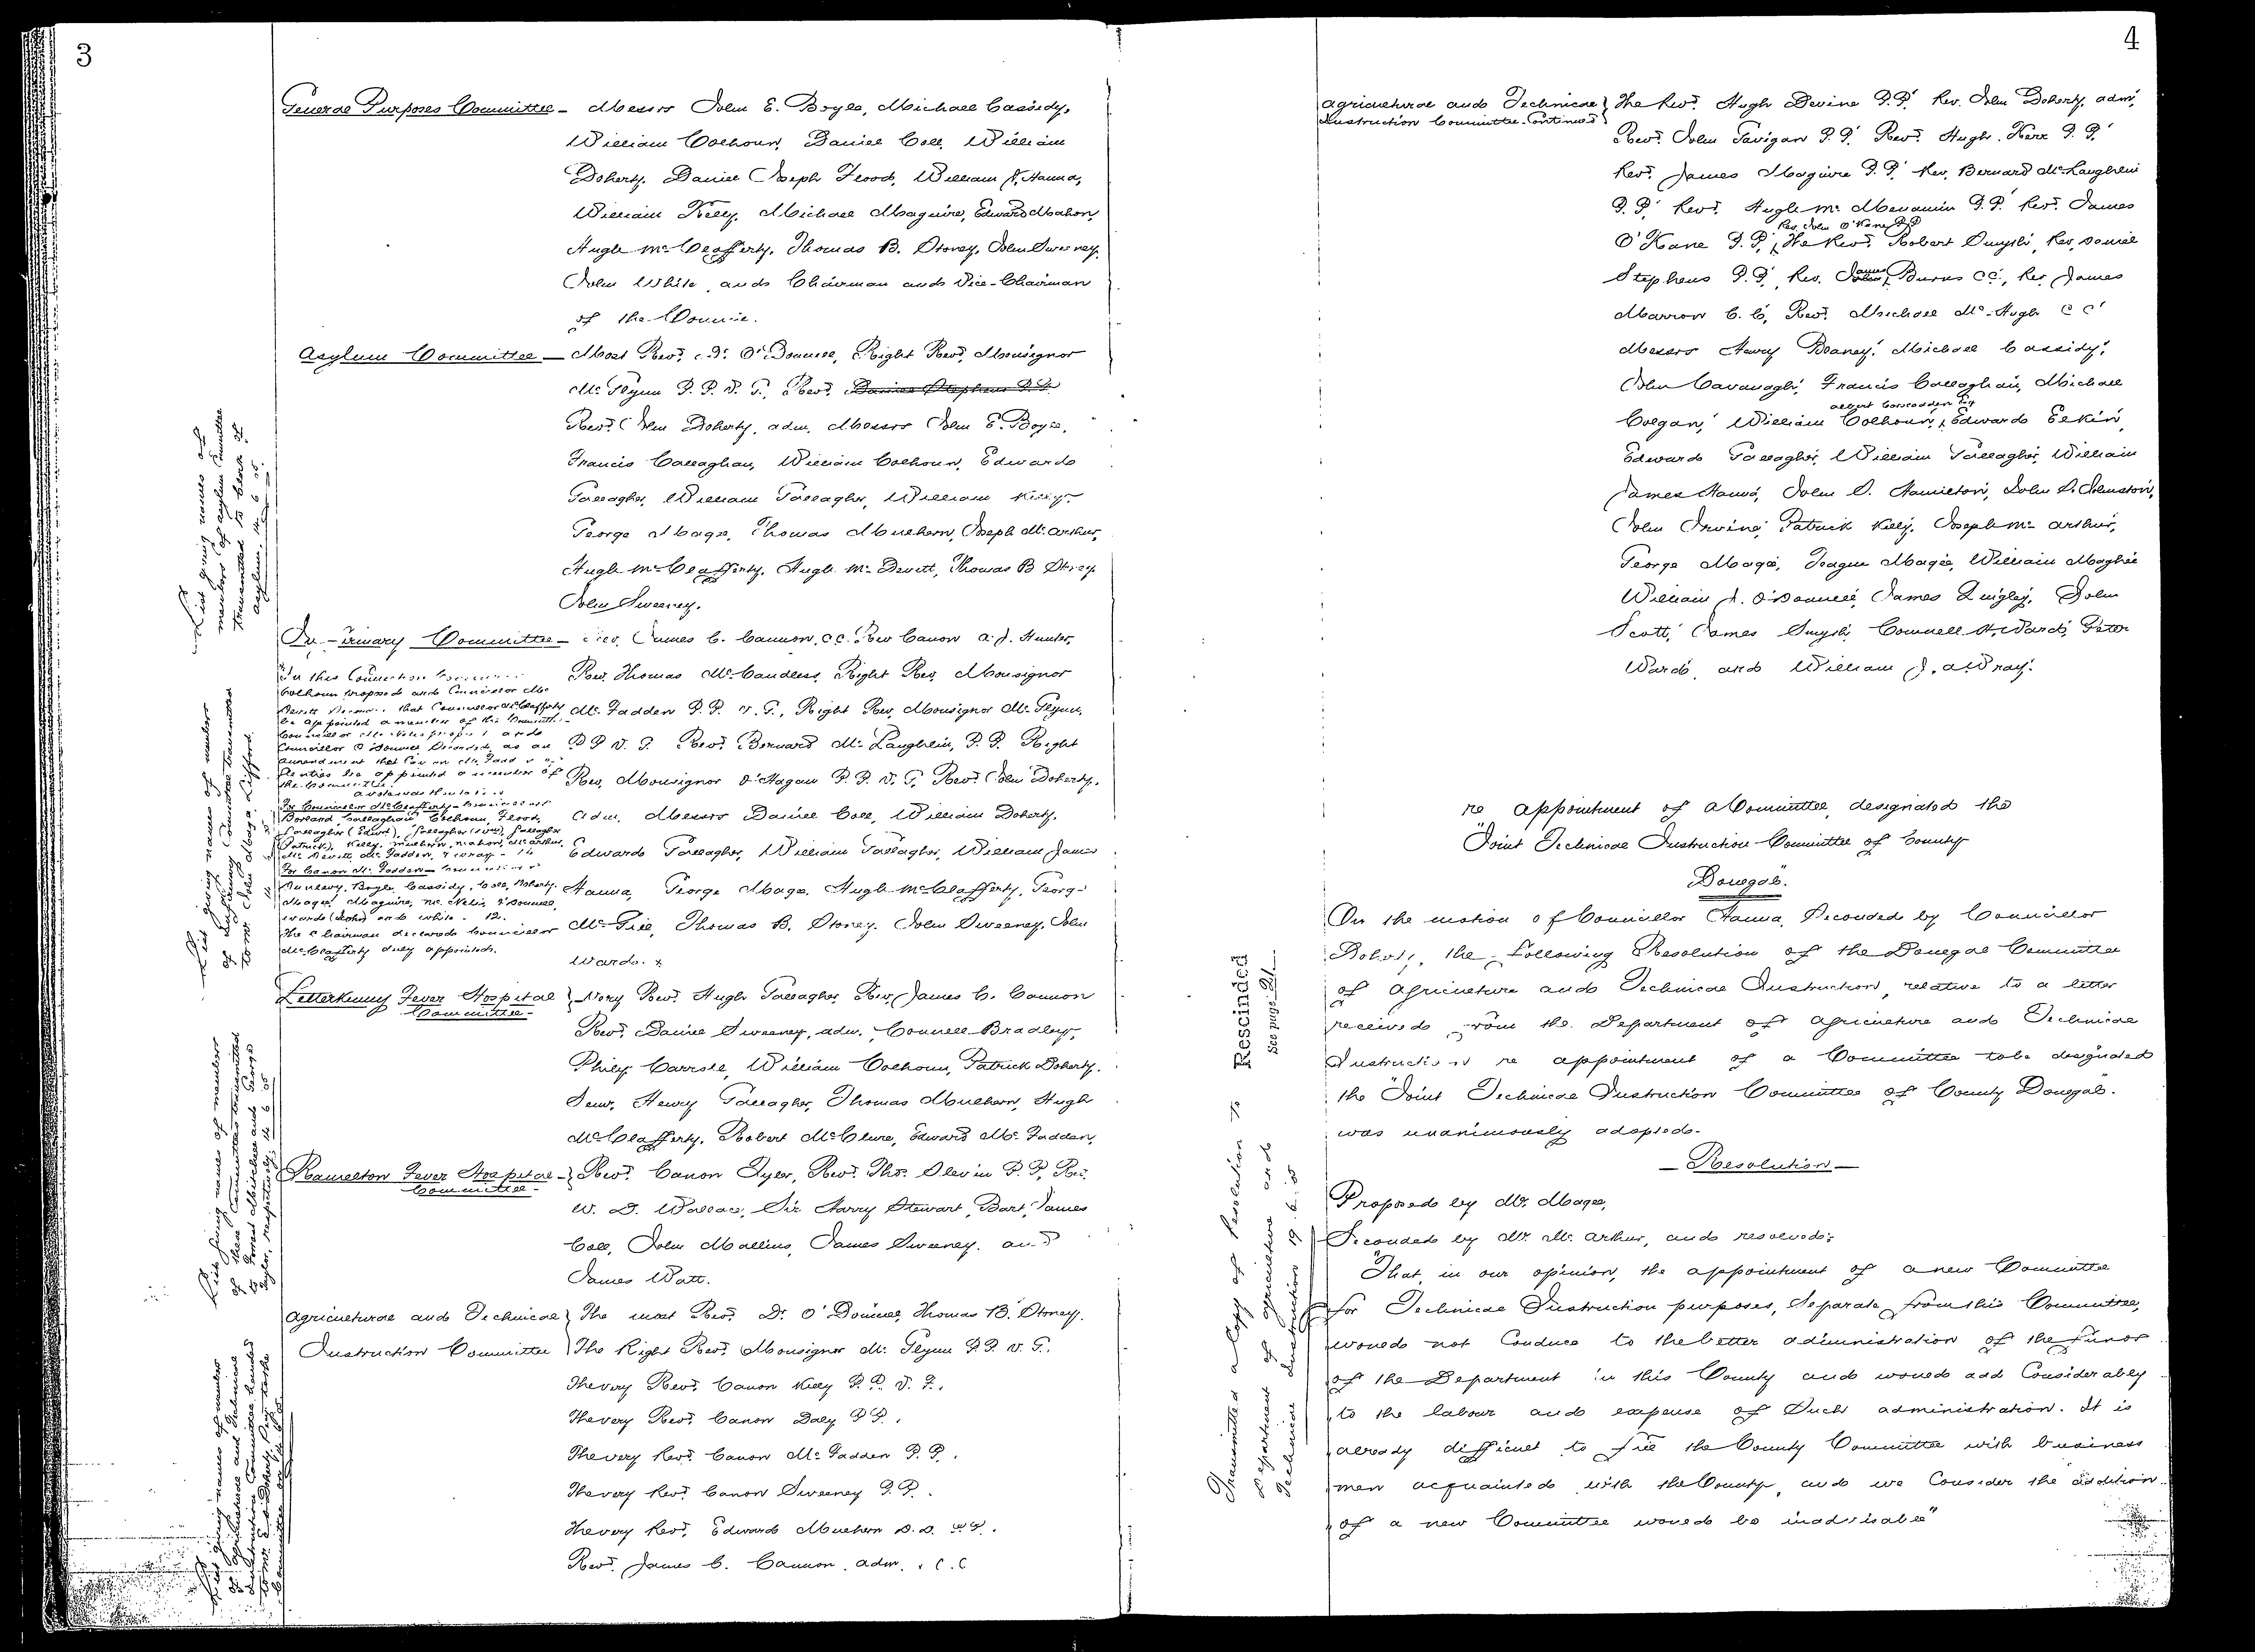 3
General Purposes Committee - Messrs John E. Boyle, Michael Cassidy,
William Colhoun, Daniel Coll, William
Doherty, Daniel Joseph Flood, William J. Hanna,
William Kelly, Michael Maguire, Edward Mahon,
Hugh McClafferty, Thomas B. Storey, John Sweeney,
John White, and Chairman and Vice-Chairman
of the Council.
Asylum Committee - Most Revd. Dr. O'Donnell, Right Revd. Monsignor
McGlynn P.P. V.G., Revd. Daniel Stephens P.P.
Revd. John Doherty, adm, Messrs John E. Boyle,
Francis Callaghan, William Colhoun, Edward
Gallagher, William Gallagher, William Kelly,
George Magee, Thomas Mulhern, Joseph McArthur,
Hugh McClafferty, Hugh McDevitt, Thomas B Storey
John Sweeney.
List giving names of
members of asylum Committee
transmitted to Clerk of
asylum. 14.6.05.
Infirmary Committee - Rev. James C. Cannon, C.C. Rev Canon A. J. Hunter,
Rev. Thomas McCandless, Right Rev. Monsignor
McFadden P.P. V.G., Right Rev. Monsignor McGlynn,
P P V. G. Revd. Bernard McLaughlin, P.P. Right
Rev. Monsignor O'Hagan P.P. V.G, Revd. John Doherty,
adm, Messrs Daniel Coll, William Doherty,
Edward Gallagher, William Gallagher, William James
Hanna, George Magee, Hugh McClafferty, George
McGill, Thomas B. Storey, John Sweeney, John
Ward.
In this Connection Councillor
Colhoun proposed and Councillor Mc
Devitt Seconded that Councillor McClafferty
be appointed a member of this Committee.
Councillor McNelis proposed and
Councillor O'Donnell Seconded, as an
amendment that Canon McFadden
Glenties be appointed a member of
the Committee.
a vote was taken
For Councillor McClafferty - Councillors
Borland, Callaghan, Colhoun, Flood,
Gallagher (Edwd), Gallagher (Wm), Gallagher
(Patrick), Kelly, Mulhern, Mahon, McArthur,
McDevitt, McFadden, & Wray - 14
For Canon McFadden - Councillors
Dunlevy, Boyle, Cassidy, Coll, Doherty,
Magee, Maguire, McNelis, O'Donnell,
Ward (John) and White - 12.
The Chairman declared Councillor
McClafferty duly appointed.
List giving names of members
of Infirmary Committee transmitted
to Mr John Magee Lifford
Letterkenny Fever Hospital } Very Revd. Hugh Gallagher, Rev. James C. Cannon
Committee -
Revd. Daniel Sweeney, adm., Connell Bradley,
Philip Carroll, William Colhoun, Patrick Doherty,
Senr. Henry Gallagher, Thomas Mulhern, Hugh
McClafferty, Robert McClure, Edward McFadden,
Ramelton Fever Hospital - } Revd. Canon Tyler, Revd. Thos. Slevin P.P, Rev.
Committee -
W. D. Wallace, Sir Harry Stewart, Bart, James
Coll, John Mallin, James Sweeney, and
James Watt.
List giving names of members
of these Committees transmitted
Agricultural and Technical } The most Revd. Dr. O'Donnell, Thomas B. Storey.
Instruction Committee } The Right Revd. Monsignor McGlynn P.P. V.G.
The very Revd. Canon Kelly P.P. V.F.
The very Revd. Canon Daly P.P.
The very Revd. Canon McFadden P.P.
The very Revd. Canon Sweeney P.P.
The very Revd. Edward Mulhern D.D. P.P.
Revd. James C. Cannon, adm. C.C
List giving names of members
of agricultural and Technical
4
Agricultural and Technical } The Revd. Hugh Devine P.P. Rev. John Doherty, adm,
Instruction Committee - Continued }
Revd. John Gavigan P.P. Revd. Hugh Kerr P.P.
Revd. James Maguire P.P. Rev. Bernard McLaughlin
P.P. Revd. Hugh McMenamin P.P. Revd. James
Rev. John O'Kane P.P
O'Kane P.P, The Revd. Robert Smyth, Rev. Daniel
Stephens P.P, Rev. James Burns CC, Rev James
Marron C.C, Revd. Michael McHugh CC
Messrs Henry Blaney, Michael Cassidy,
John Cavanagh, Francis Callaghan, Michael
Albert Corscadden Esq
Colgan, William Colhoun, Edward Eekin,
Edward Gallagher, William Gallagher, William
James Hanna, John S. Hamilton, John S. Johnston,
John Irvine, Patrick Kelly, Joseph McArthur,
George Magee, Teague Magee, William Maghee
William J. O'Donnell, James Quigley, John
Scott, James Smyth, Connell H. Ward, Peter
Ward, and William J. A. Wray.
re appointment of a Committee, designated the
"Joint Technical Instruction Committee of County
Donegal."
On the motion of Councillor Hanna, Seconded by Councillor
Doherty, the following Resolution of the Donegal Committee
of Agriculture and Technical Instruction, relative to a letter
received from the Department of Agriculture and Technical
Instruction re appointment of a Committee to be designated
the "Joint Technical Instruction Committee of County Donegal".
was unanimously adopted.
Rescinded
See page 21
— Resolution —
Proposed by Mr. Magee,
Seconded by Mr McArthur, and resolved:
"That, in our opinion, the appointment of a new Committee
for Technical Instruction purposes, Separate from this Committee,
would not Conduce to the better administration of the Funds
of the Department in this County and would add Considerably
to the labour and expense of Such administration. It is
already difficult to fill the County Committee with business
men acquainted with the County, and we Consider the addition
of a new Committee would be inadvisable"
Transmitted a Copy of Resolution to
Department of Agriculture and
Technical Instruction 19.6.05